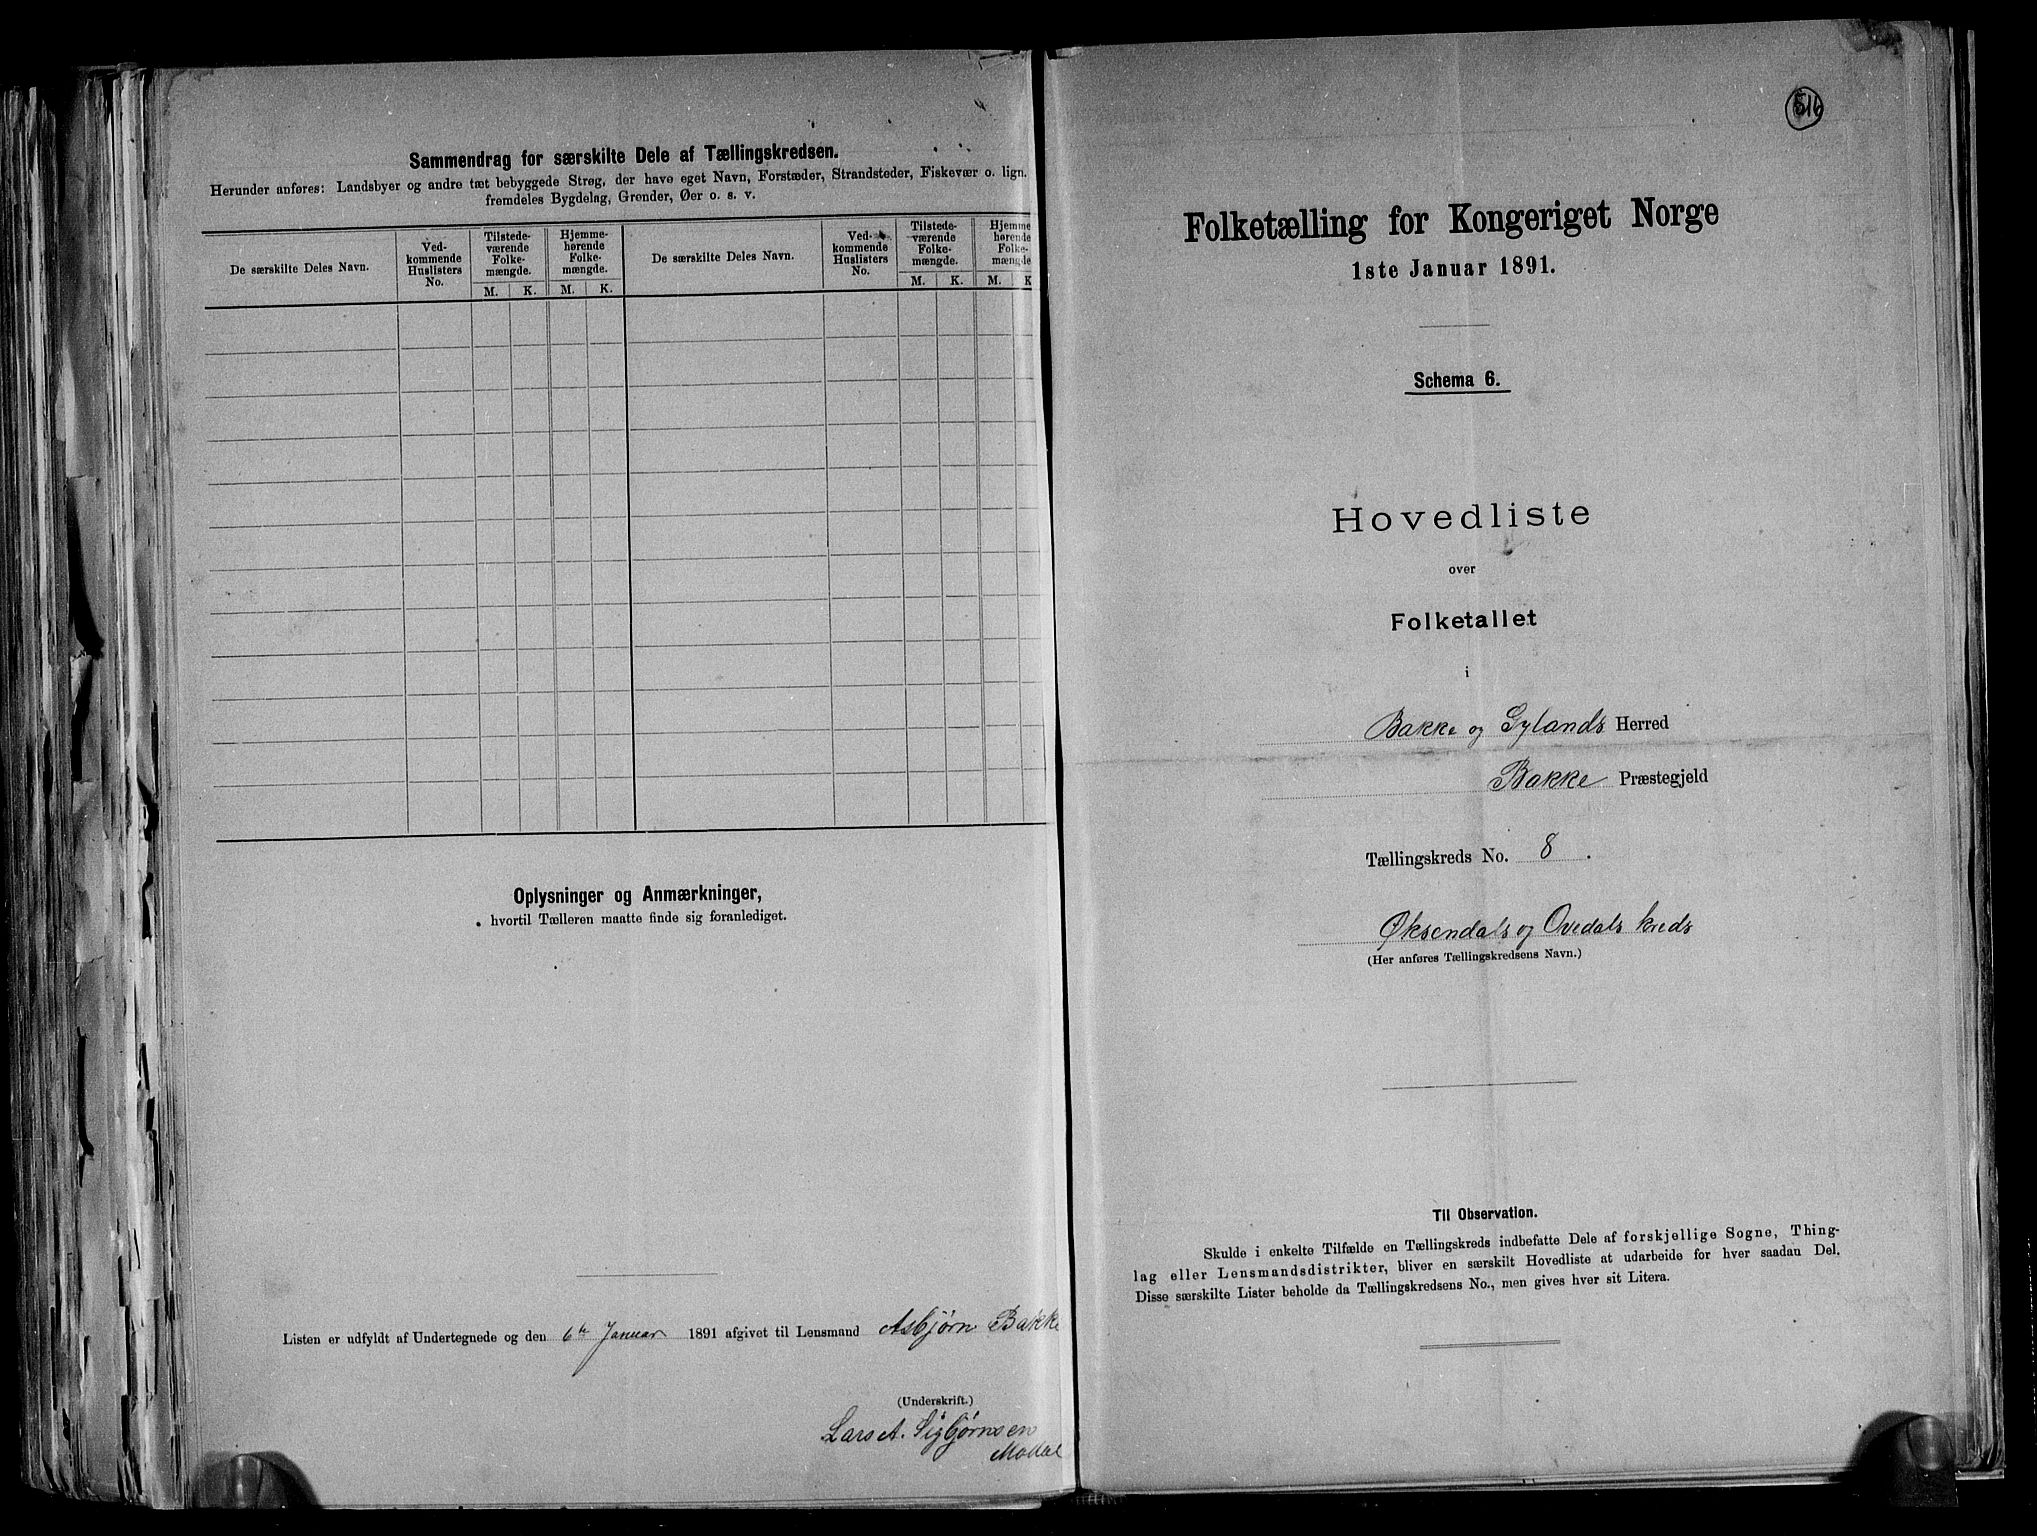 Sammendrag for særskilte Dele af Tællingskredsen.
Herunder anføres: Landsbyer og andre tæt bebyggede Strøg, der have eget Navn, Forstæder, Strandsteder, Fiskevær o. lign.
fremdeles Bygdelag, Grender, Øer o. s. v.
De særskilte Deles Navn.
Ved-
kommende
Huslisters
No.
Tilstede-
værende
Folke-
mængde.
M. K.
Hjemme-
hørende
Folke-
mængde.
M. K.
De særskilte Deles Navn.
Ved-
kommende
Huslisters
No.
Tilstede-
værende
Folke-
mængde.
M. K.
Hjemme
hørende
Folke-
mængde
M. K
Oplysninger og Anmærkninger,
hvortil Tælleren maatte finde sig foranlediget.
Listen er udfyldt af Undertegnede og den 6te Januar 1891 afgivet til Lensmand Asbjørn Bakke
(Underskrift.)
Lars A. Sigbjørnsen
516
Folketælling for Kongeriget Norge
1ste Januar 1891.
Schema 6.
Hovedliste
over
Folketallet
i
Bakke og Gylands Herred
Bakke Præstegjeld
Tællingskreds No. 8.
Øksendals og Ovedals kreds
(Her anføres Tællingskredsens Navn.)
Til Observation.
Skulde i enkelte Tilfælde en Tællingskreds indbefatte Dele af forskjellige Sogne, Thing-
lag eller Lensmandsdistrikter, bliver en særskilt Hovedliste at udarbeide for hver saadan Del.
Disse særskilte Lister beholde da Tællingskredsens No., men gives hver sit Litera.